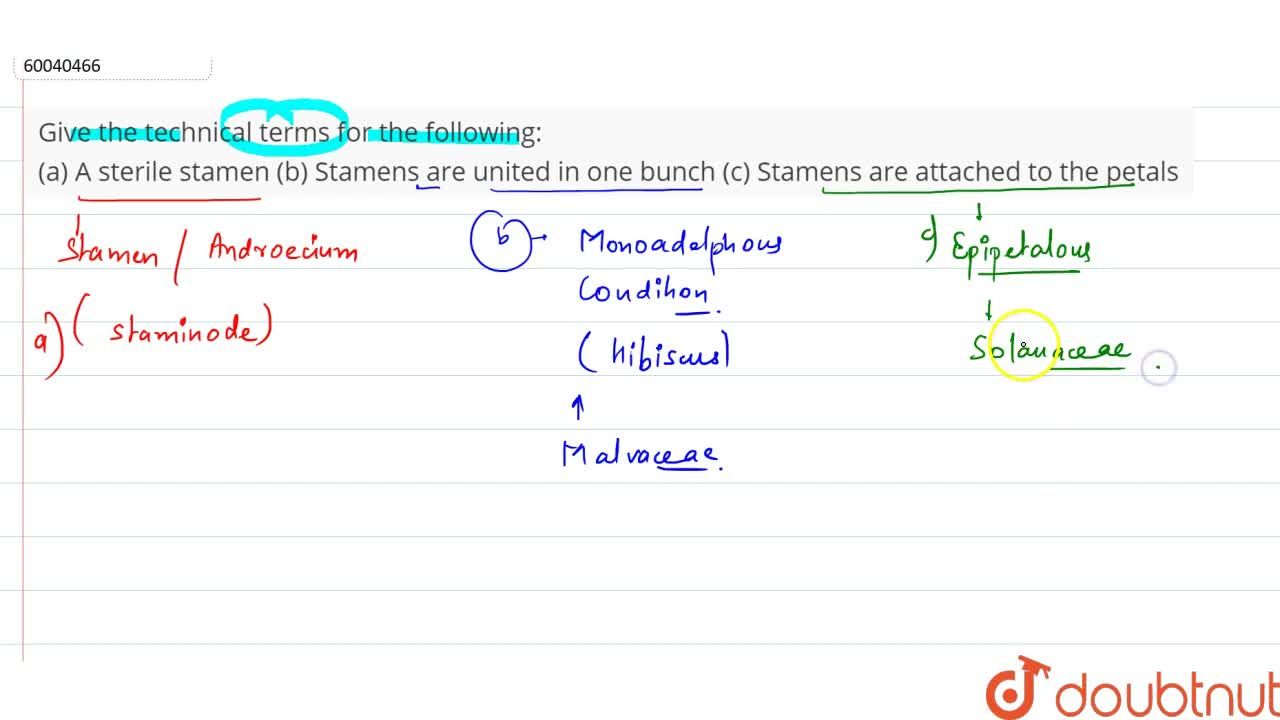 60040466
Give the technical terms for the following:
(a) A sterile stamen (b) Stamens are united in one bunch (c) Stamens are attached to the petals
Stamen / Androecium
a) ( staminode)
b Monoadelphous
Condition.
( hibiscus)
Malvaceae.
c) Epipetalous
Solanaceae
doubtnut